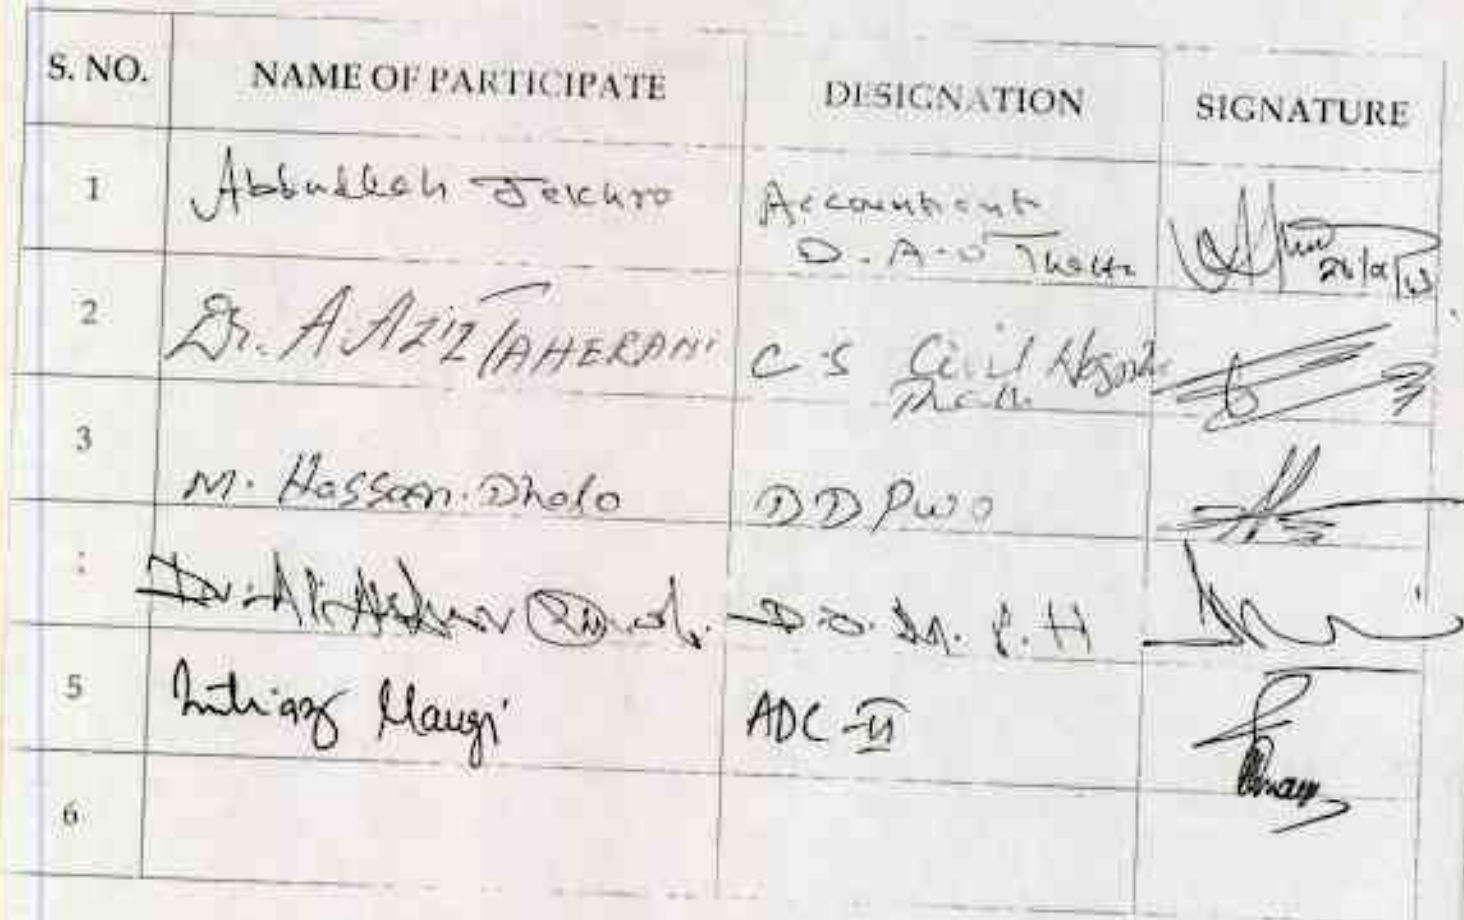 S. NO. NAME OF PARTICIPATE DESIGNATION SIGNATURE
1 Abbudllah Jakhro Accountant
D. A. O Thatta
2 Dr. A. AZIZ TAHERANI C.S Civil Hospital
Thatta
3 M. Hassan Dholo DD PWO
Dr. Ali Asghar D.O. M. P. H
5 Imtiaz Mangi ADC-II
6